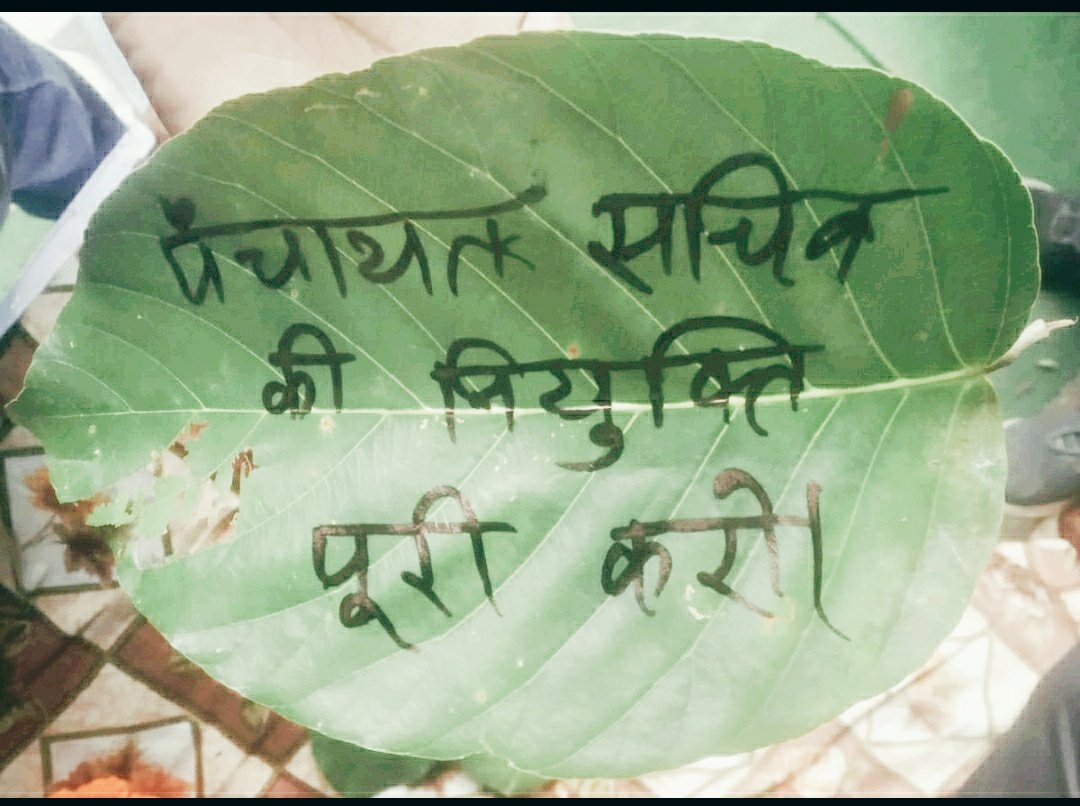 पंचायत सचिव
की नियुक्ति
पूरी करो।